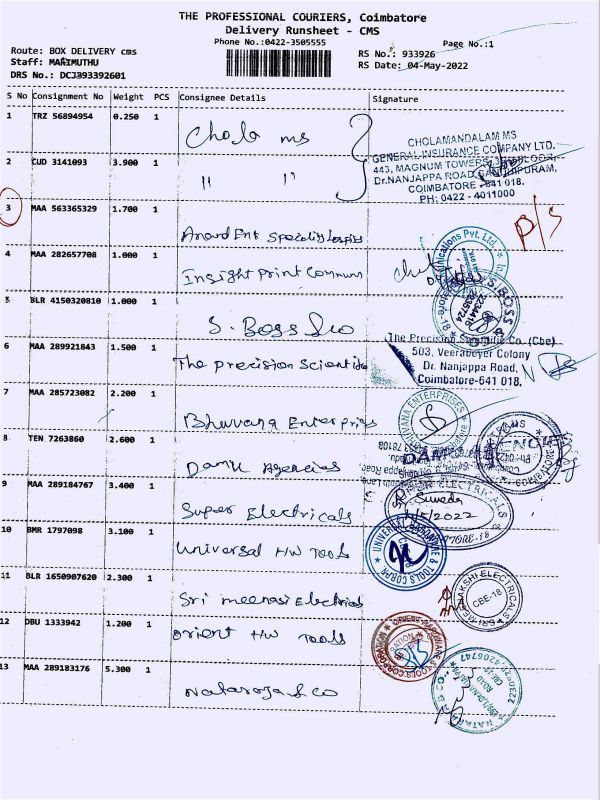 THE PROFESSIONAL COURIERS, Coimbatore
Delivery Runsheet - CMS
Phone No.:0422-3505555
Page No.:1
Route: BOX DELIVERY cms
RS No.: 933926
Staff: MARIMUTHU
RS Date: 04-May-2022
DRS No.: DCJ393392601
S No Consignment No Weight PCS Consignee Details Signature
1 TRZ 56894954 0.250 1 Chola ms
CHOLAMANDALAM MS
GENERAL INSURANCE COMPANY LTD.
443, MAGNUM TOWERS,
Dr.NANJAPPA ROAD,
COIMBATORE - 641 018.
PH: 0422 - 4011000
2 CUD 3141093 3.900 1 " "
3 MAA 563365329 1.700 1 Anand Ent Speciality P/S
4 MAA 282657708 1.000 1 Insight print Commun
5 BLR 4150320810 1.000 1 S. Boss & co
S.BOSS
6 MAA 289921843 1.500 1 The precision Scientific
The Precision Scientific Co. (Cbe)
503, Veeraboyer Colony
Dr. Nanjappa Road,
Coimbatore-641 018.
7 MAA 285723082 2.200 1 Bhuvana Enterprises
ENTERPRISES
8 TEN 7263860 2.600 1 Damu Agencies
9 MAA 289184767 3.400 1 Super Electricals
ELECTRICALS
10 BMR 1797098 3.100 1 Universal H/W Tools
UNIVERSAL HARDWARE & TOOLS CORPR
11 BLR 1650907620 2.300 1 Sri meenasi Electricals
SRI MEENAKSHI ELECTRICALS
CBE-18
12 DBU 1333942 1.200 1 Orient H/W Tools
13 MAA 289183176 5.300 1 Nataraja & co